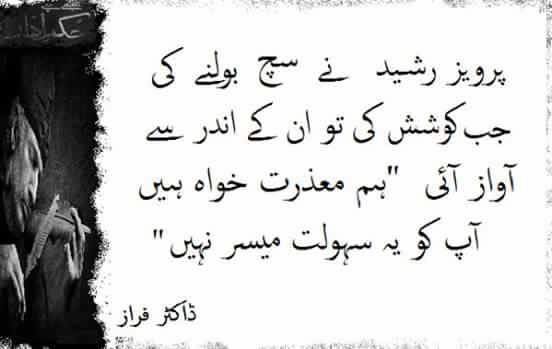 پرویز رشید نے سچ بولنے کی
جب کوشش کی تو ان کے اندر سے
آواز آئی "ہم معذرت خواہ ہیں
آپ کو یہ سہولت میسر نہیں"
ڈاکٹر فراز